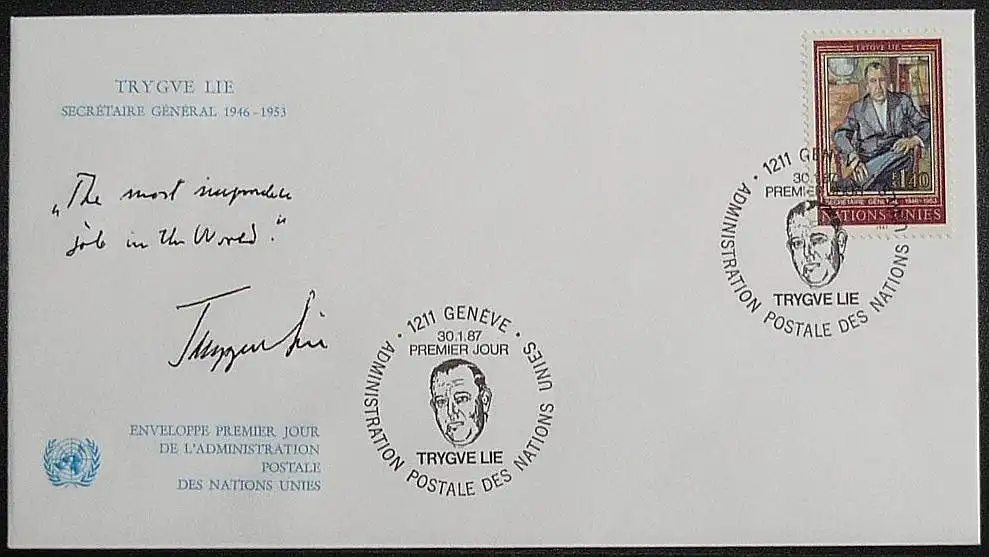 TRYGVE LIE
SECRÉTAIRE GÉNÉRAL 1946-1953
„The most impossible
job in the World."
Trygve Lie
ENVELOPPE PREMIER JOUR
DE L'ADMINISTRATION
POSTALE
DES NATIONS UNIES
1211 GENÈVE
30.1.87
PREMIER JOUR
TRYGVE LIE
ADMINISTRATION POSTALE DES NATIONS UNIES
TRYGVE LIE
1.40
SECRÉTAIRE GÉNÉRAL 1946-1953
NATIONS UNIES
1211 GEN
30.1.87
PREMIER JOUR
TRYGVE LIE
ADMINISTRATION POSTALE DES NATIONS